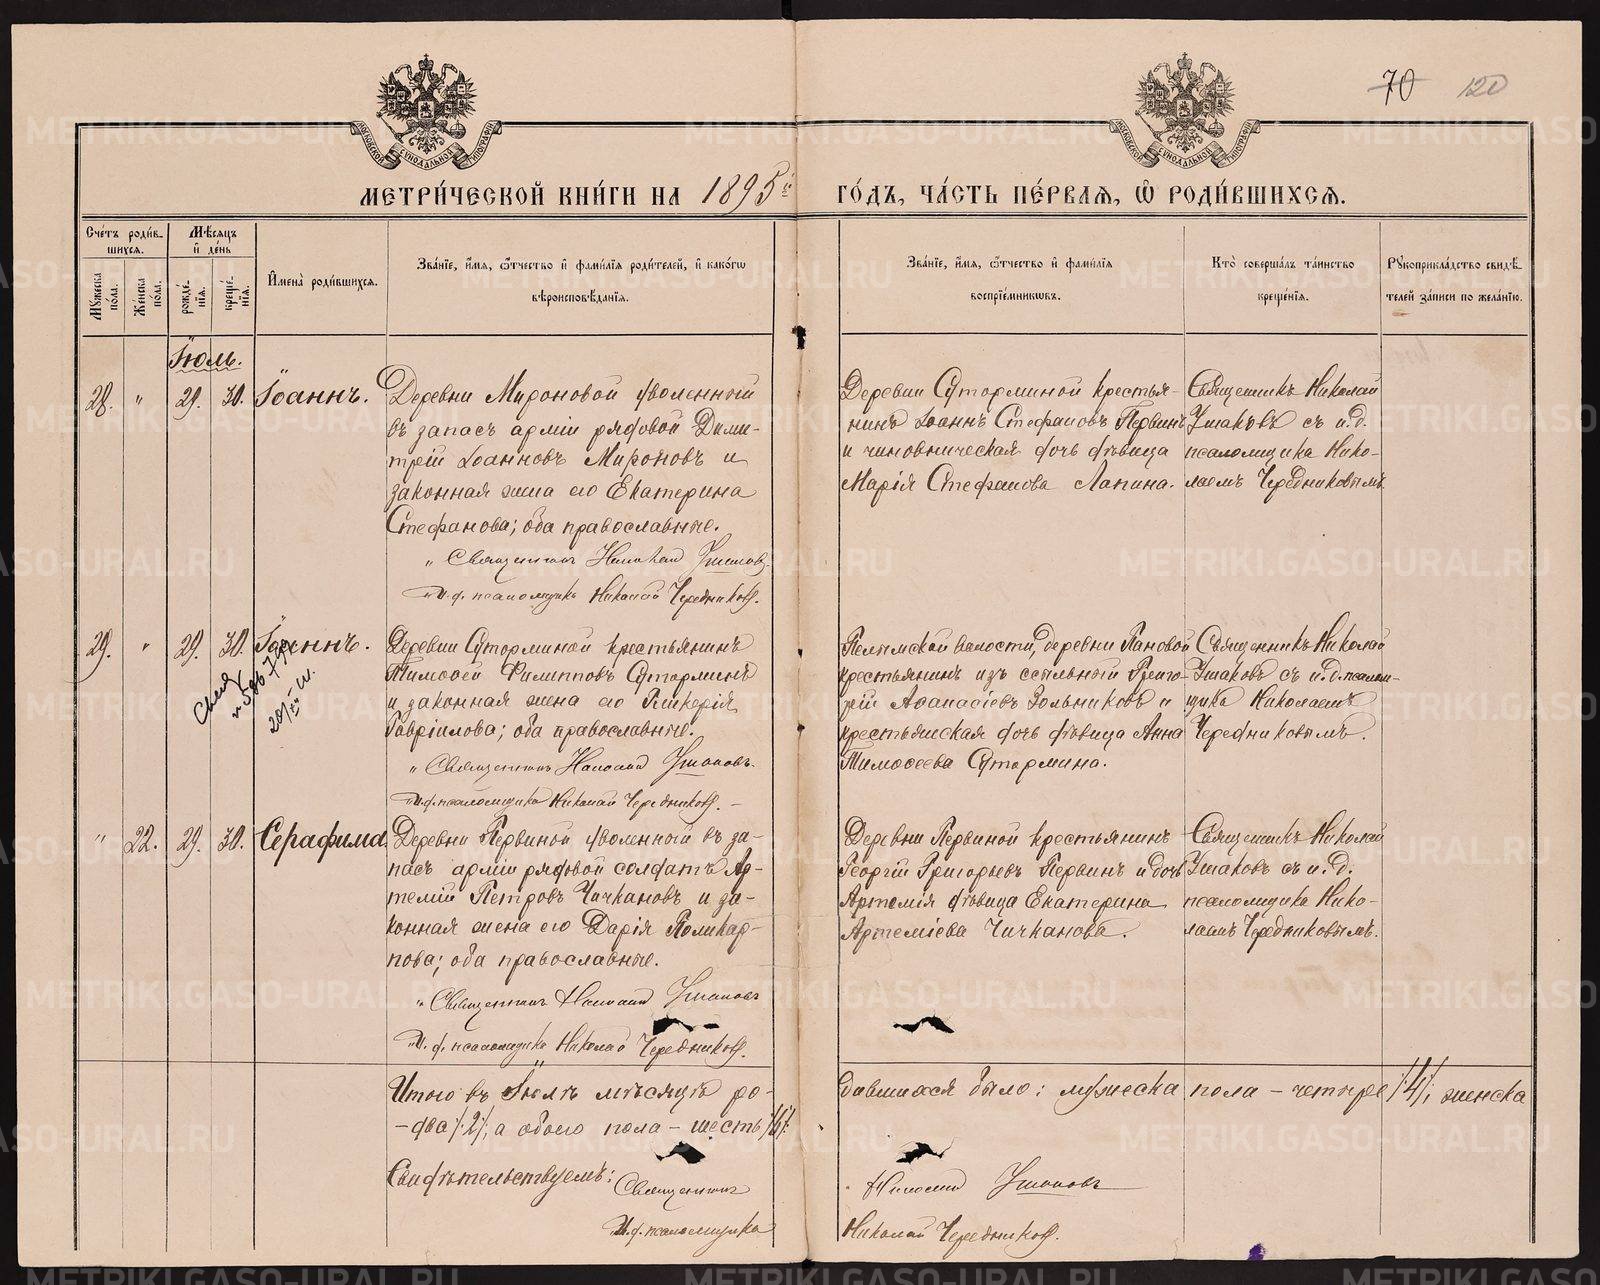 70 120
МОСКОВСКОЙ СѴНОДАЛЬНОЙ ТИПОГРАФІИ
МОСКОВСКОЙ СѴНОДАЛЬНОЙ ТИПОГРАФІИ
МЕТРИ́ЧЕСКОЙ КНИ́ГИ НА 1895й ГО́ДЪ, ЧА́СТЬ ПЕ́РВАѦ, Ѡ҆ РОДИ́ВШИХСѦ.
Сче́тъ роди́в-
шихсѧ.
Мꙋ́жеска по́ла.
Же́нска по́ла.
Мѣ́сѧцъ и҆ де́нь
рожде́-
нїѧ.
креще́-
нїѧ.
И҆мена̀ роди́вшихсѧ.
Зва́нїе, и҆́мѧ, ѻ҆́тчество и҆ фами́лїѧ роди́телей, и҆ како́гѡ
вѣроисповѣ́данїѧ.
Зва́нїе, и҆́мѧ, ѻ҆́тчество и҆ фами́лїѧ
воспрїе́мникѡвъ.
Кто̀ соверша́лъ та́инство
креще́нїѧ.
Рꙋкоприкла́дство свидѣ́-
телей за́писи по жела́нїю.
Іюль.
28. " 29. 30. Іоаннъ.
Деревни Мироновой уволенный
въ запасъ арміи рядовой Дими-
трій Іоанновъ Мироновъ и
законная жена его Екатерина
Стефанова; оба православные.
" Священникъ Николай Ушаковъ.
И. д. псаломщика Николай Чередниковъ.
Деревни Сутормино́й крестья-
нинъ Іоаннъ Стефановъ Первинъ
и чиновническая дочь дѣвица
Марія Стефанова Лапина.
Священникъ Николай
Ушаковъ съ и. д.
псаломщика Нико-
лаемъ Чередниковымъ.
29. " 29. 30. Іоаннъ.
20/III
Деревни Суторминой крестьянинъ
Тимоѳей Филипповъ Суторминъ
и законная жена его Гликерія
Гавріилова; оба православные.
" Священникъ Николай Ушаковъ.
И. д. псаломщика Николай Чередниковъ. –
Пелымской волости, деревни Пановой
крестьянинъ изъ ссыльныхъ Григо-
рій Аѳанасіевъ Зольниковъ и
крестьянская дочь дѣвица Анна
Тимоѳеева Сутормина.
Священникъ Николай
Ушаковъ съ и. д. псалом-
щика Николаемъ
Чередниковымъ.
" 22. 29. 30. Серафима.
Деревни Первиной уволенный въ за-
пасъ арміи рядовой солдатъ Ар-
темій Петровъ Чичкановъ и за-
конная жена его Дарія Поликар-
пова; оба православные.
" Священникъ Николай Ушаковъ
И. д. псаломщика Николай Чередниковъ.
Деревни Первиной крестьянинъ
Георгій Григорьевъ Первинъ и дочь
Артемія дѣвица Екатерина
Артеміева Чичканова.
Священникъ Николай
Ушаковъ съ и. д.
псаломщика Нико-
лаемъ Чередниковымъ.
Итого въ Іюлѣ мѣсяцѣ ро- дившихся было: мужеска пола – четыре /4/, женска
– два /2/, а обоего пола – шесть /6/.
Свидѣтельствуемъ: Священникъ Николай Ушаковъ
И. д. псаломщика Николай Чередниковъ.
METRIKI.GASO-URAL.RU